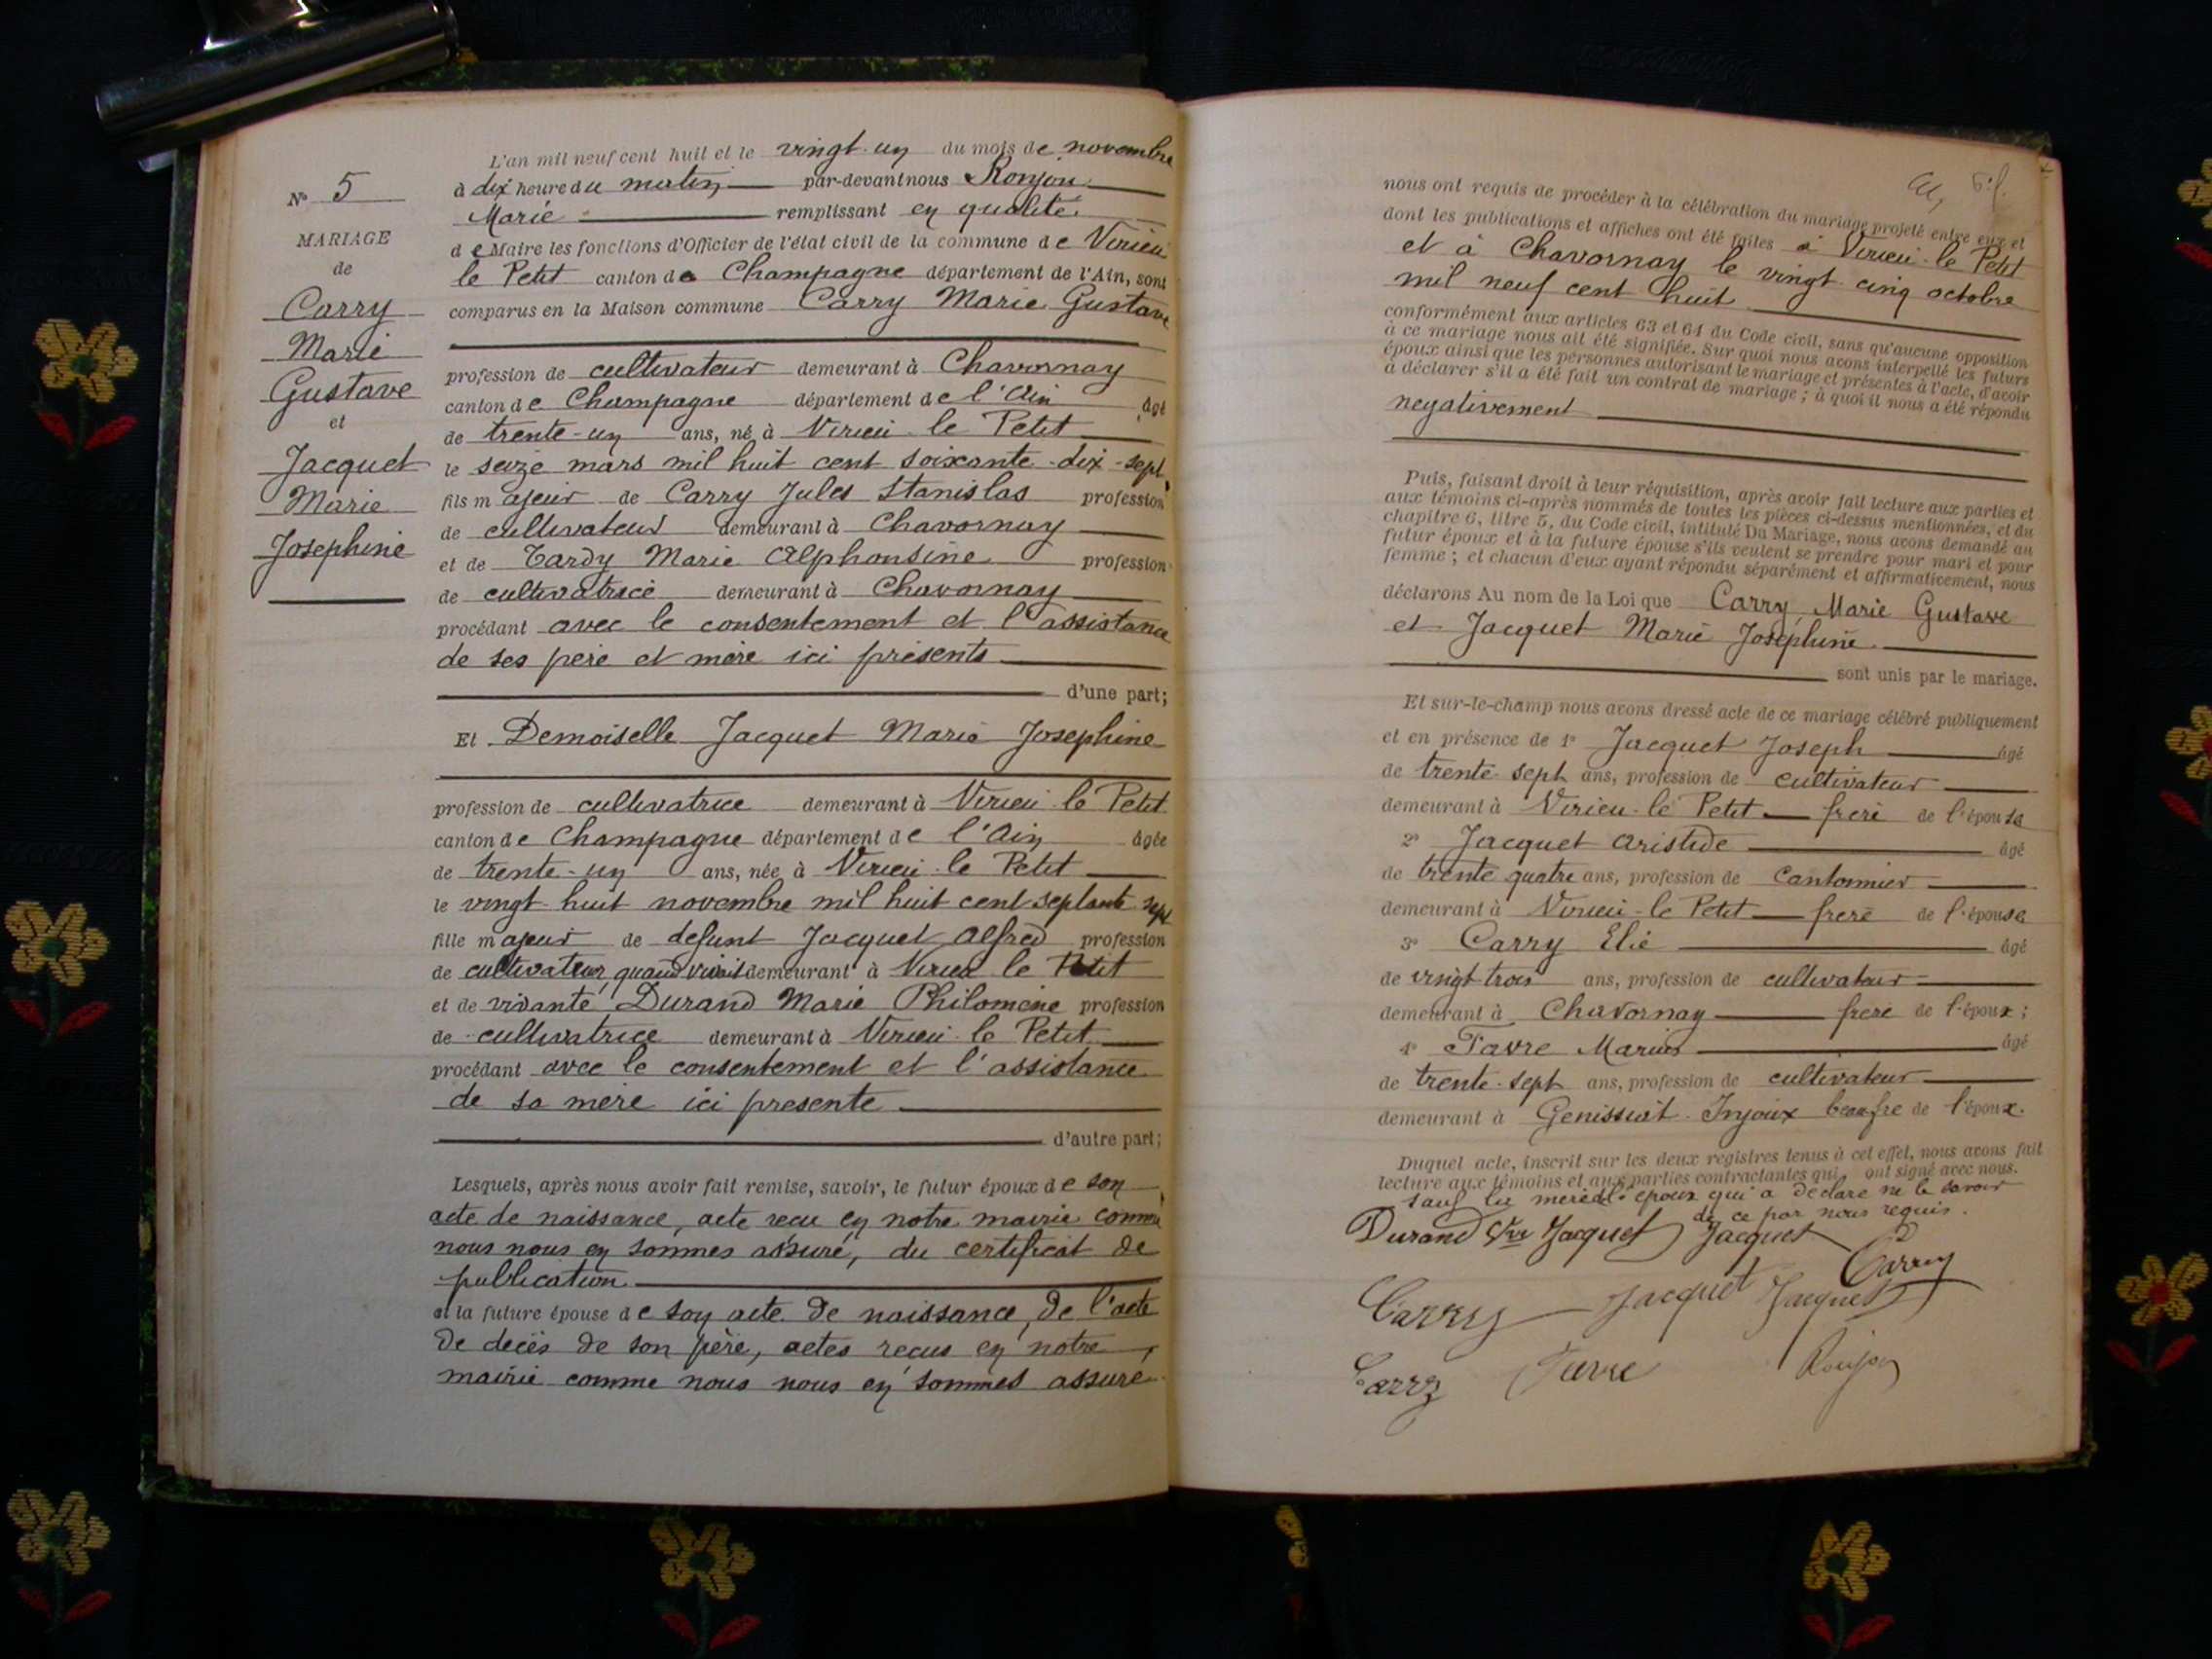 N° 5
MARIAGE
de
Carry
Marie
Gustave
et
Jacquet
Marie
Josephine
L'an mil neuf cent huit et le vingt-un du mois de novembre
à dix heure du matin par-devant nous Ronjon
Marie remplissant en qualité
de Maire les fonctions d'Officier de l'état civil de la commune de Virieu
le Petit canton de Champagne département de l'Ain, sont
comparus en la Maison commune Carry Marie Gustave
profession de cultivateur demeurant à Chavornay
canton de Champagne département de l'Ain âgé
de trente-un ans, né à Virieu-le Petit
le seize mars mil huit cent soixante-dix-sept,
fils majeur de Carry Jules Stanislas profession
de cultivateur demeurant à Chavornay
et de Tardy Marie Alphonsine profession
de cultivatrice demeurant à Chavornay
procédant avec le consentement et l'assistance
de ses père et mère ici présents
d'une part;
Et Demoiselle Jacquet Marie Josephine
profession de cultivatrice demeurant à Virieu-le Petit
canton de Champagne département de l'Ain âgée
de trente-un ans, née à Virieu-le Petit
le vingt-huit novembre mil huit cent septante sept
fille majeur de defunt Jacquet Alfred profession
de cultivateur, quand vivait demeurant à Virieu le Petit
et de vivante Durand Marie Philomène profession
de cultivatrice demeurant à Virieu-le Petit
procédant avec le consentement et l'assistance
de sa mère ici presente
d'autre part;
Lesquels, après nous avoir fait remise, savoir, le futur époux de son
acte de naissance, acte reçu en notre mairie comme
nous nous en sommes assuré, du certificat de
publication
et la future épouse de son acte de naissance, de l'acte
de decès de son père, actes reçus en notre
mairie comme nous nous en sommes assuré
nous ont requis de procéder à la célébration du mariage projeté entre eux et
dont les publications et affiches ont été faites à Virieu-le Petit
et à Chavornay le vingt-cinq octobre
mil neuf cent huit
conformément aux articles 63 et 64 du Code civil, sans qu'aucune opposition
à ce mariage nous ait été signifiée. Sur quoi nous avons interpellé les futurs
époux ainsi que les personnes autorisant le mariage et présentes à l'acte, d'avoir
à déclarer s'il a été fait un contrat de mariage; à quoi il nous a été répondu
negativement
Puis, faisant droit à leur réquisition, après avoir fait lecture aux parties et
aux témoins ci-après nommés de toutes les pièces ci-dessus mentionnées, et du
chapitre 6, titre 5, du Code civil, intitulé Du Mariage, nous avons demandé au
futur époux et à la future épouse s'ils veulent se prendre pour mari et pour
femme; et chacun d'eux ayant répondu séparément et affirmativement, nous
déclarons Au nom de la Loi que Carry, Marie Gustave
et Jacquet Marie Josephine
sont unis par le mariage.
Et sur-le-champ nous avons dressé acte de ce mariage célébré publiquement
et en présence de 1° Jacquet Joseph âgé
de trente-sept ans, profession de cultivateur
demeurant à Virieu-le Petit frere de l'épouse
2° Jacquet Aristide âgé
de trente quatre ans, profession de Cantonnier
demeurant à Virieu-le Petit frere de l'épouse
3° Carry Elie âgé
de vingt-trois ans, profession de cultivateur
demeurant à Chavornay frere de l'époux;
4° Favre Marius âgé
de trente-sept ans, profession de cultivateur
demeurant à Genissiat-Injoux beaufre de l'époux.
Duquel acte, inscrit sur les deux registres tenus à cet effet, nous avons fait
lecture aux témoins et aux parties contractantes qui, ont signé avec nous.
sauf la mère de l'epoux qui a déclaré ne le savoir
de ce par nous requis.
Durand Vve Jacquet Jacquet Carry
Carry Jacquet Jacquet
Carry Favre Ronjon